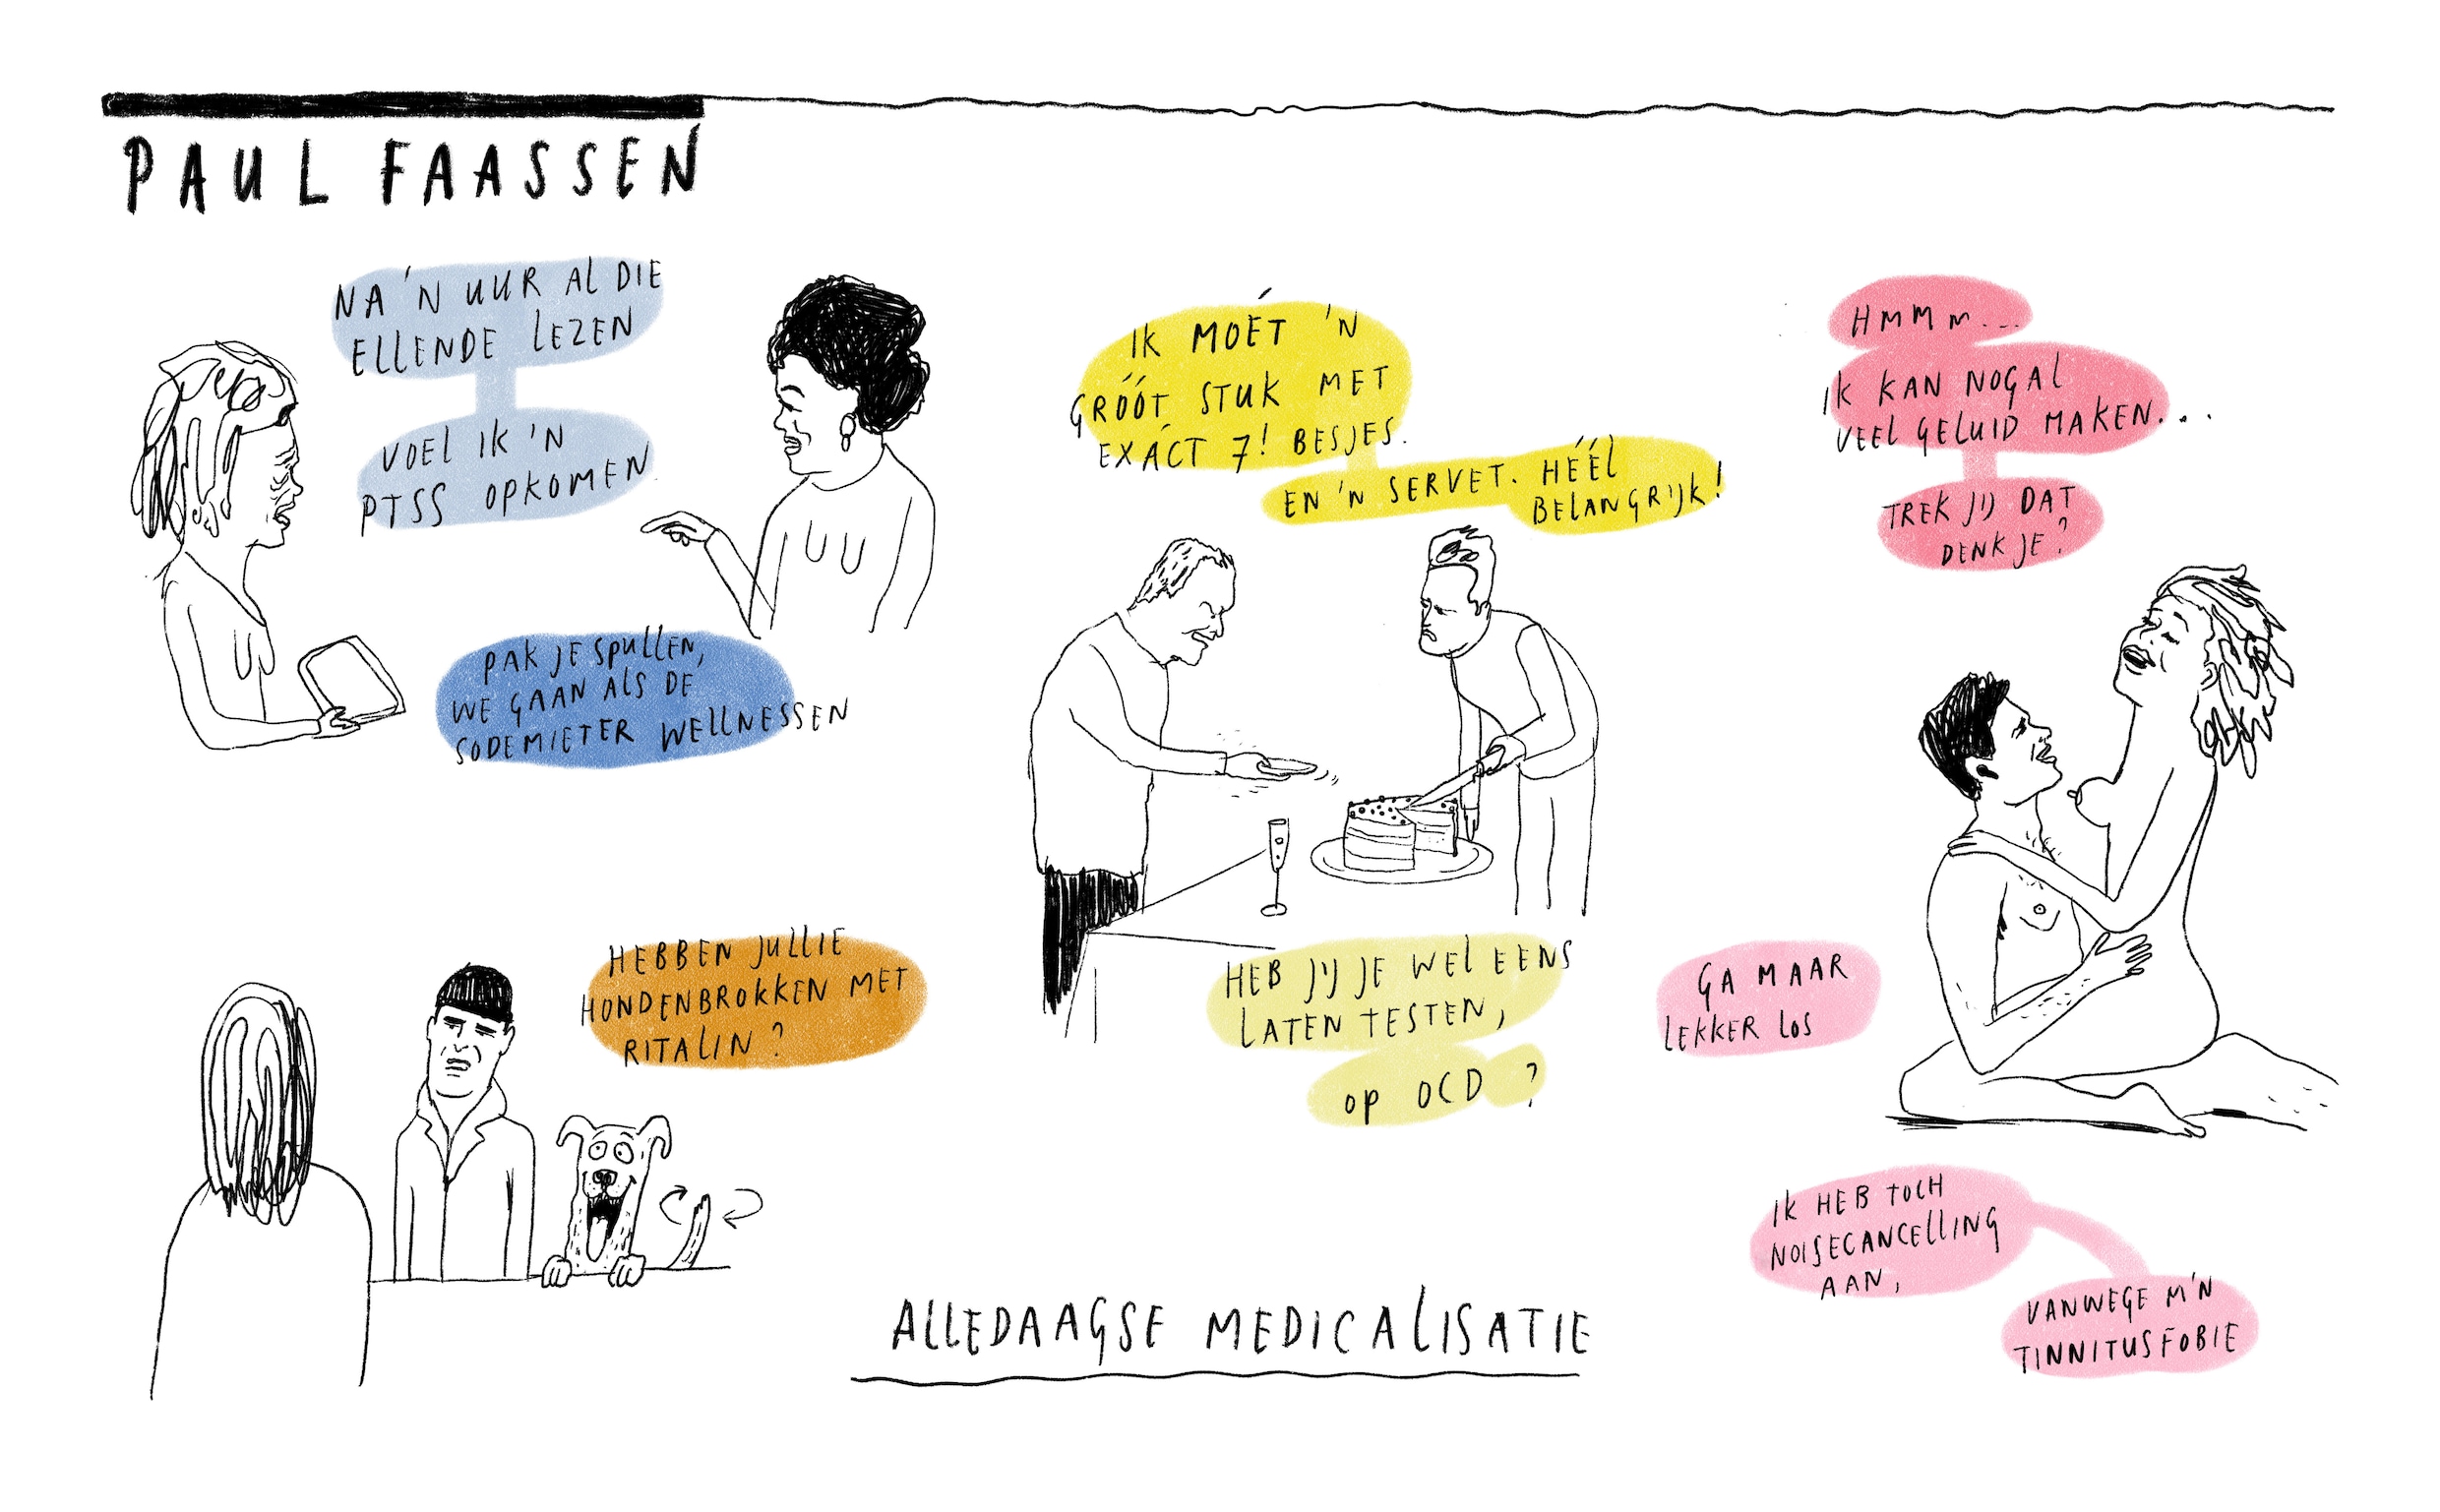 PAUL FAASSEN
NA 'N UUR AL DIE
ELLENDE LEZEN
VOEL IK 'N
PTSS OPKOMEN
PAK JE SPULLEN,
WE GAAN ALS DE
SODEMIETER WELLNESSEN
HEBBEN JULLIE
HONDENBROKKEN MET
RITALIN?
IK MOÉT 'N
GRÓÓT STUK MET
EXÁCT 7! BESJES.
EN 'N SERVET. HÉÉL
BELANGRIJK!
HEB JIJ JE WEL EENS
LATEN TESTEN,
OP OCD?
HMMM...
IK KAN NOGAL
VEEL GELUID MAKEN...
TREK JIJ DAT
DENK JE?
GA MAAR
LEKKER LOS
IK HEB TOCH
NOISECANCELLING
AAN,
VANWEGE M'N
TINNITUSFOBIE
ALLEDAAGSE MEDICALISATIE